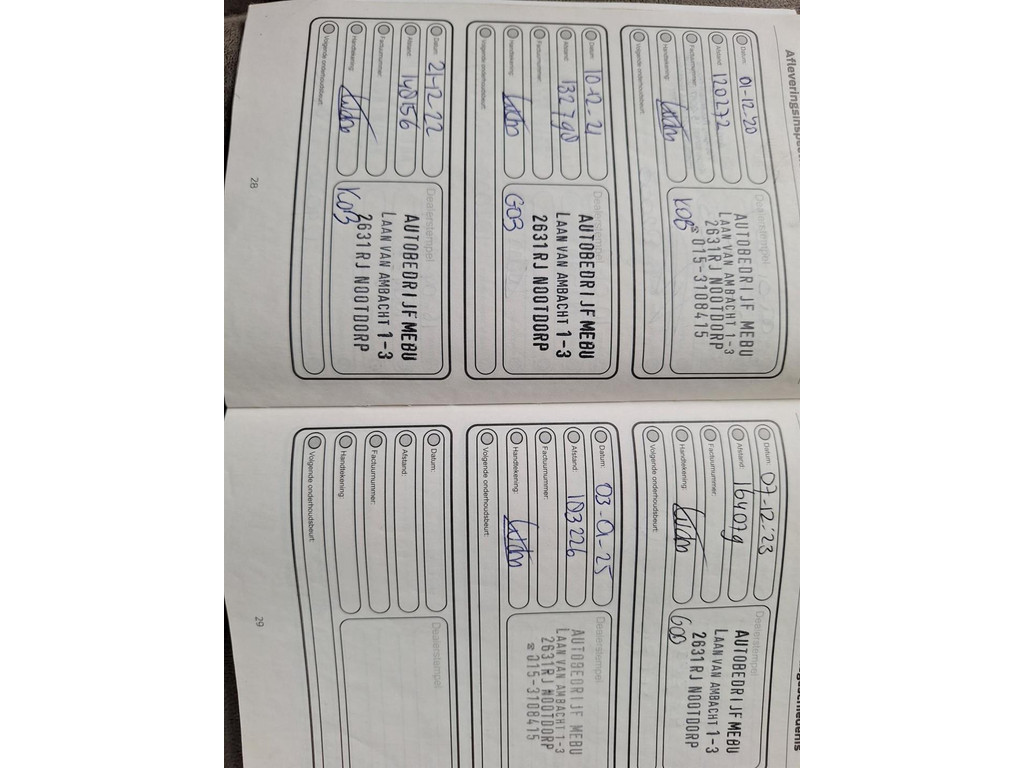 Afleveringsinspec
Datum: 01-12-'20
Afstand: 120272
Factuurnummer:
Handtekening:
Volgende onderhoudsbeurt:
Dealerstempel
AUTOBEDRIJF MEBU
LAAN VAN AMBACHT 1-3
2631RJ NOOTDORP
☎ 015-3108415
KOB
Datum: 10-12-21
Afstand: 132790
Factuurnummer:
Handtekening:
Volgende onderhoudsbeurt:
Dealerstempel
AUTOBEDRIJF MEBU
LAAN VAN AMBACHT 1-3
2631RJ NOOTDORP
GOB
Datum: 21-12-22
Afstand: 148156
Factuurnummer:
Handtekening:
Volgende onderhoudsbeurt:
Dealerstempel
AUTOBEDRIJF MEBU
LAAN VAN AMBACHT 1-3
2631RJ NOOTDORP
KOB
28
gschiedenis
Datum: 07-12-'23
Afstand: 164079
Factuurnummer:
Handtekening:
Volgende onderhoudsbeurt:
Dealerstempel
AUTOBEDRIJF MEBU
LAAN VAN AMBACHT 1-3
2631RJ NOOTDORP
Datum: 03-01-25
Afstand: 183226
Factuurnummer:
Handtekening:
Volgende onderhoudsbeurt:
Dealerstempel
AUTOBEDRIJF MEBU
LAAN VAN AMBACHT 1-3
2631RJ NOOTDORP
☎ 015-3108415
Datum:
Afstand:
Factuurnummer:
Handtekening:
Volgende onderhoudsbeurt:
Dealerstempel
29